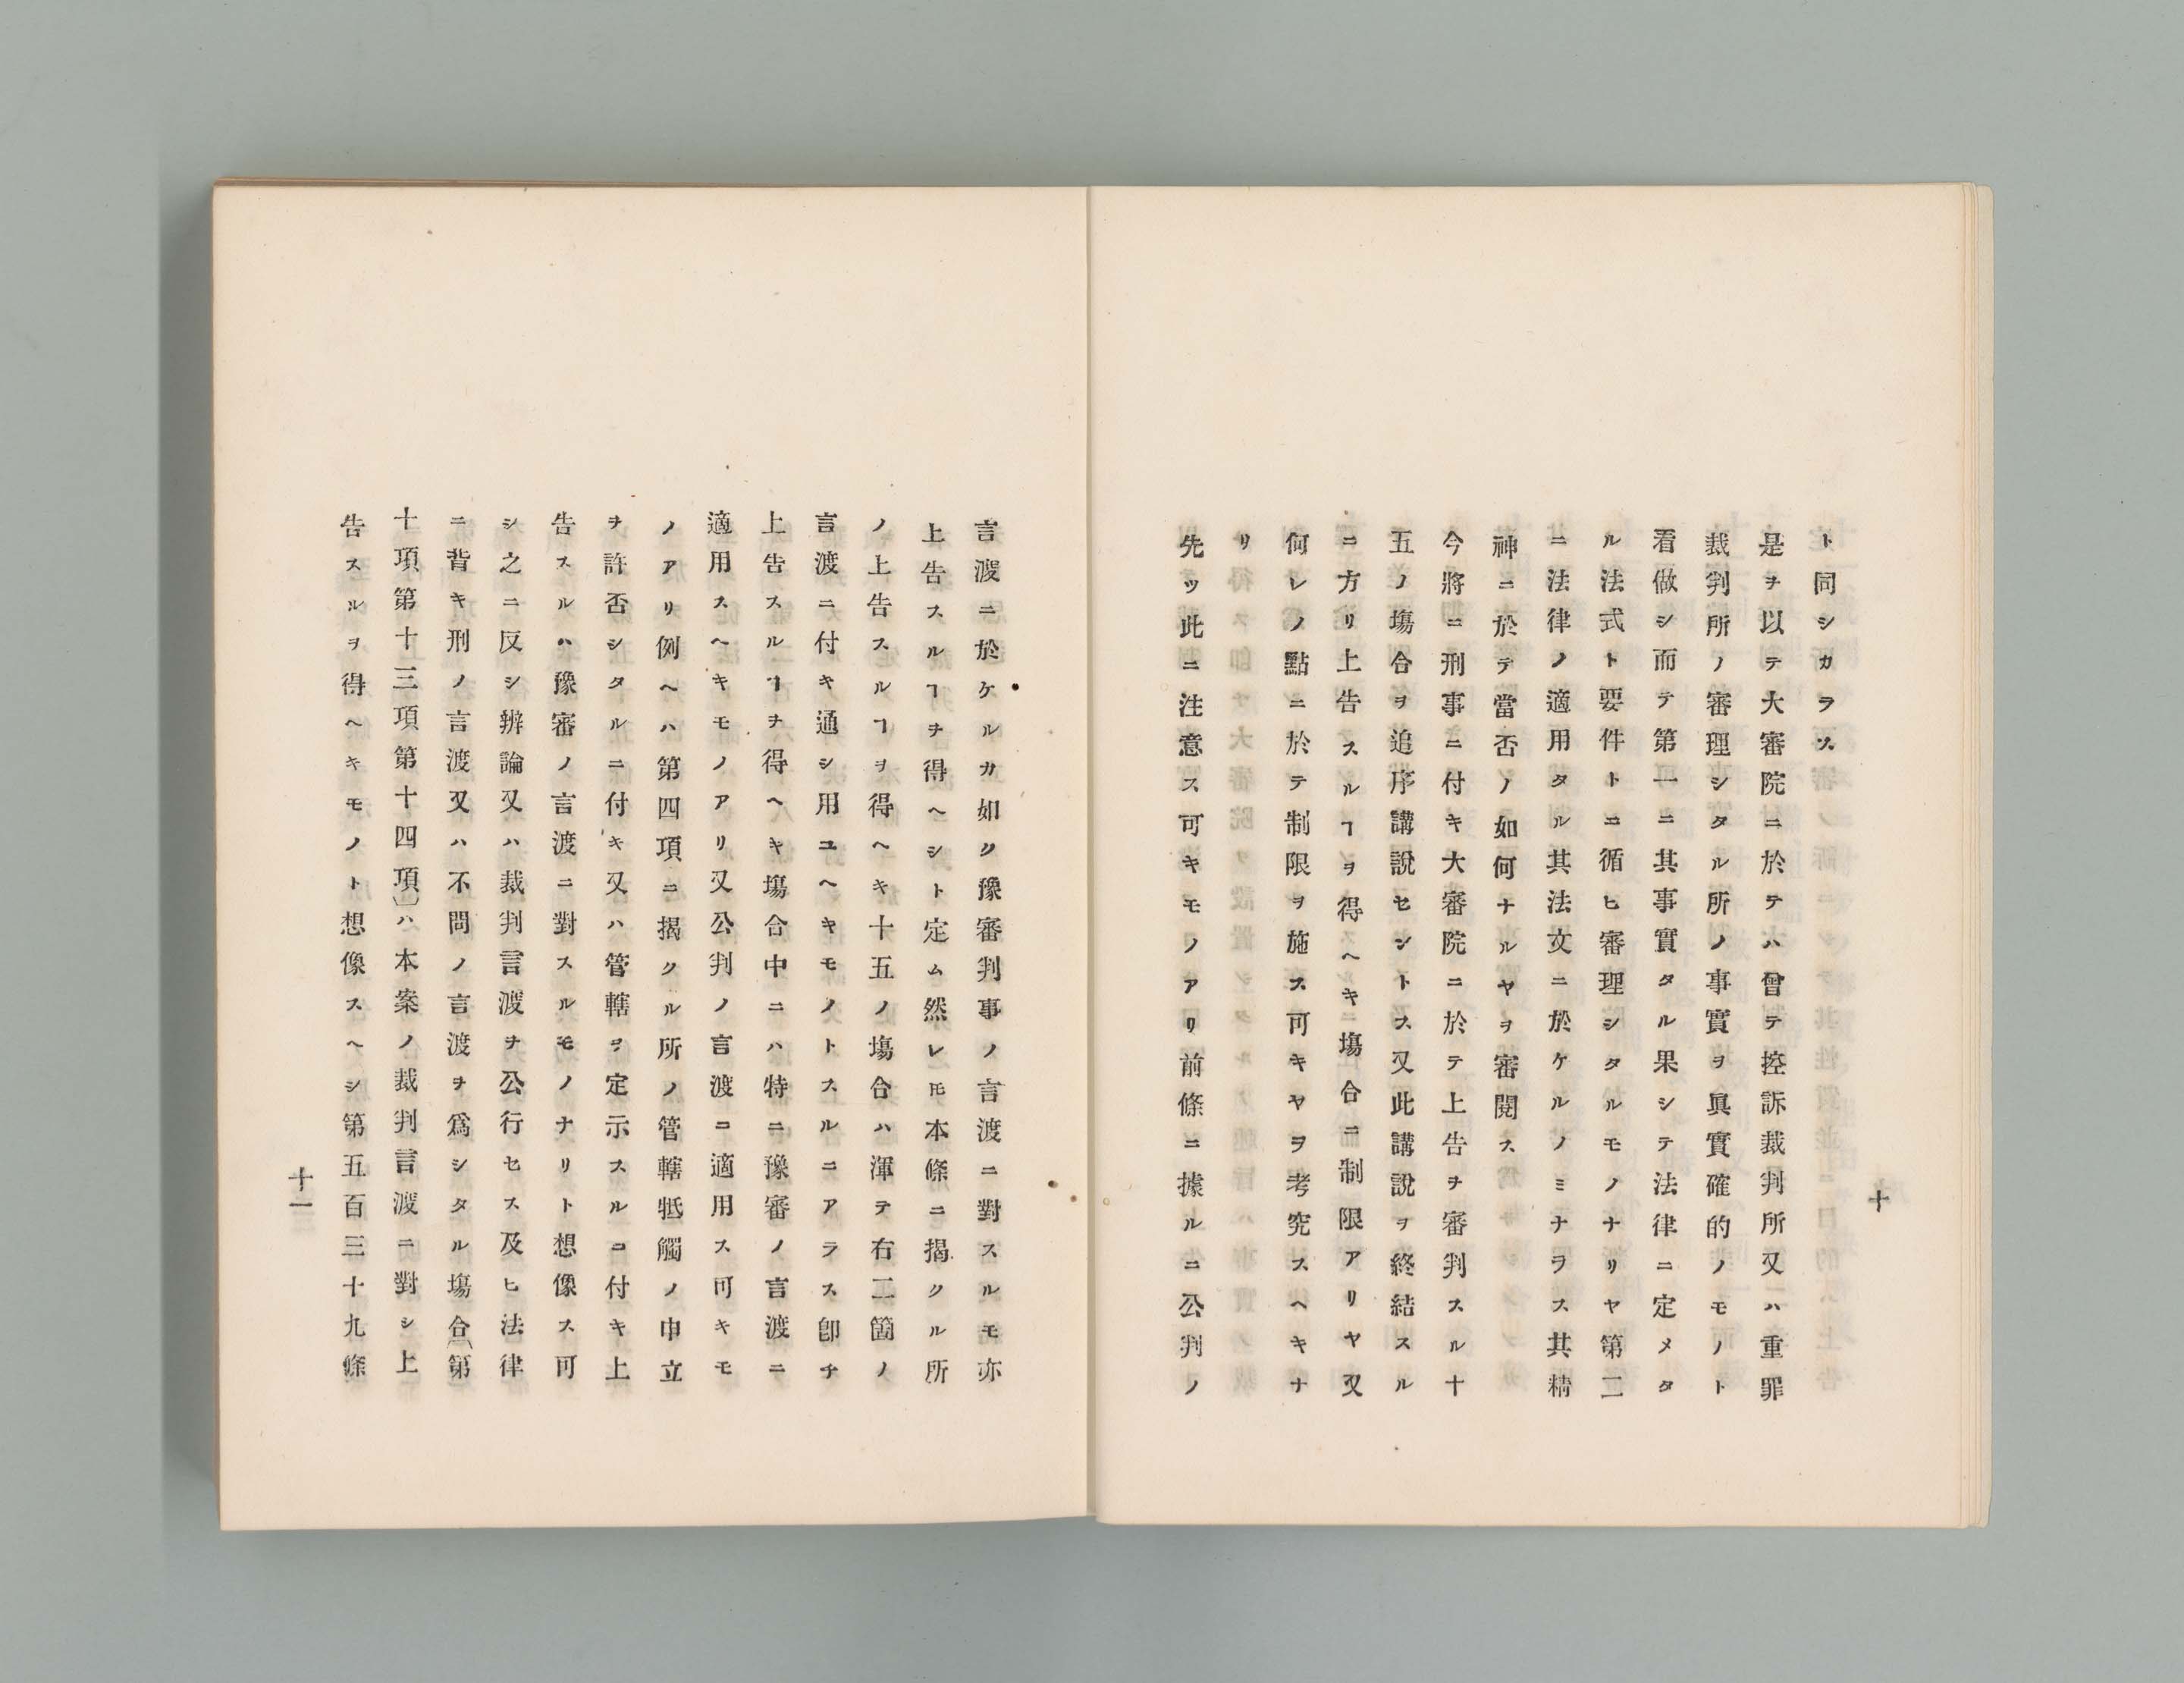 十
ト同シカラス
是ヲ以テ大審院ニ於テハ曾テ控訴裁判所又ハ重罪
裁判所ノ審理シタル所ノ事實ヲ眞實確的ノモノト
看做シ而テ第一ニ其事實タル果シテ法律ニ定メタ
ル法式ト要件トニ循ヒ審理シタルモノナリヤ第二
ニ法律ノ適用タル其法文ニ於ケルノミナラス其精
神ニ於テ當否ノ如何ナルヤヲ審閱ス
今將ニ刑事ニ付キ大審院ニ於テ上告ヲ審判スル十
五ノ塲合ヲ追序講說セントス又此講說ヲ終結スル
ニ方リ上告スルヿヲ得ヘキ塲合ニ制限アリヤ又
何レノ點ニ於テ制限ヲ施ス可キヤヲ考究スヘキナ
リ
先ツ此ニ注意ス可キモノアリ前條ニ據ルニ公判ノ
言渡ニ於ケルカ如ク豫審判事ノ言渡ニ對スルモ亦
上告スルヿヲ得ヘシト定ム然レ𪜈本條ニ揭クル所
ノ上告スルヿヲ得ヘキ十五ノ塲合ハ渾テ右二箇ノ
言渡ニ付キ通シ用ユヘキモノトスルニアラス卽チ
上告スルヿヲ得ヘキ塲合中ニハ特ニ豫審ノ言渡ニ
適用スヘキモノアリ又公判ノ言渡ニ適用ス可キモ
ノアリ例ヘハ第四項ニ揭クル所ノ管轄牴觸ノ申立
ヲ許否シタルニ付キ又ハ管轄ヲ定示スルニ付キ上
告スルハ豫審ノ言渡ニ對スルモノナリト想像ス可
シ之ニ反シ辨論又ハ裁判言渡ヲ公行セス及ヒ法律
ニ背キ刑ノ言渡又ハ不問ノ言渡ヲ爲シタル塲合(第
十項第十三項第十四項)ハ本案ノ裁判言渡ニ對シ上
告スルヲ得ヘキモノト想像スヘシ第五百三十九條
十一